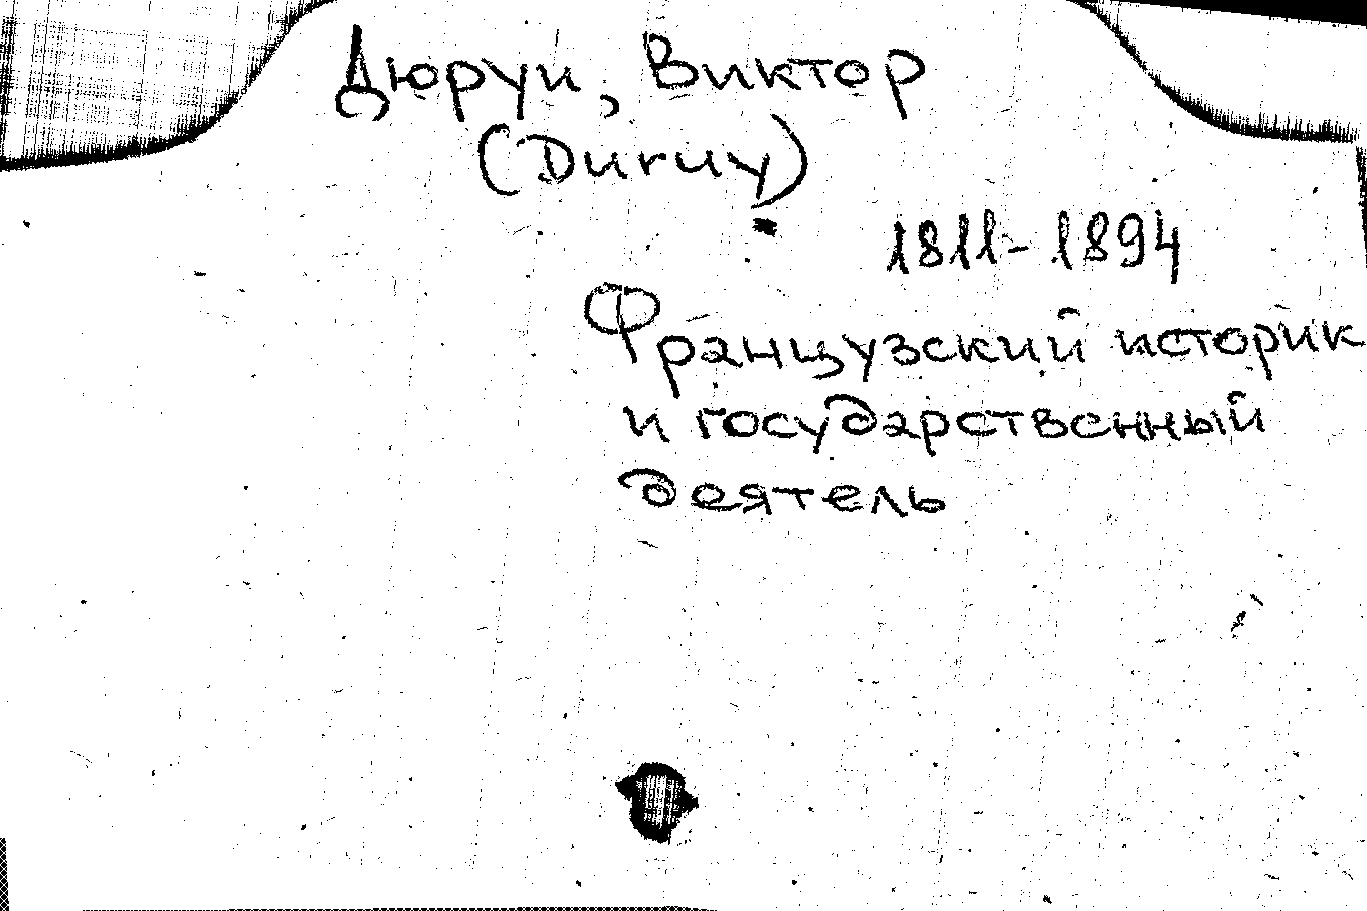 Дюруи, Виктор
(Duruy)
1811-1894
Французский историк
и государственный
деятель